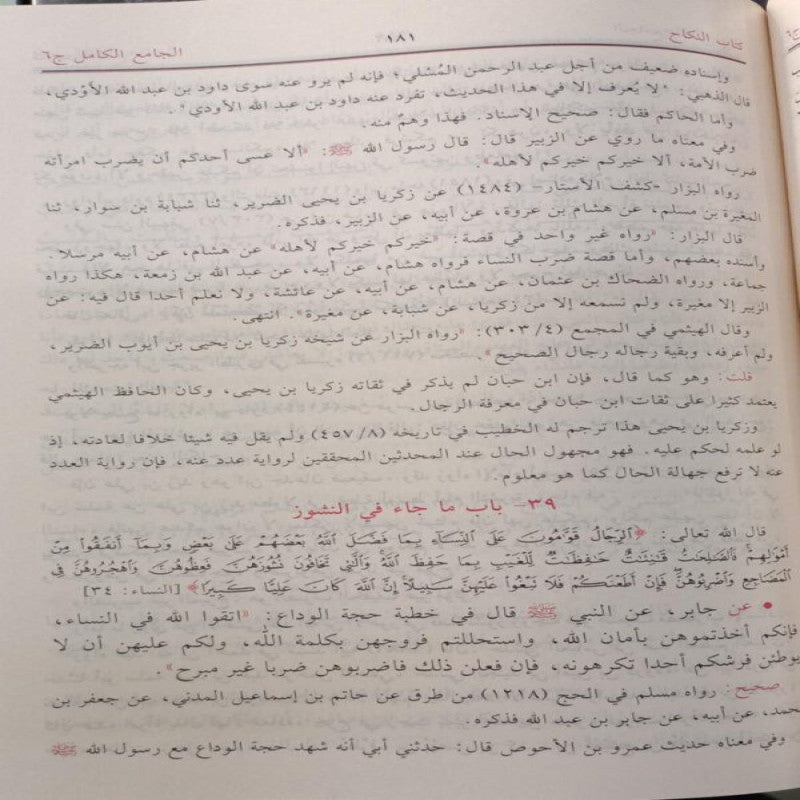 كتاب النكاح ١٨١ الجامع الكامل ج٦
وإسناده ضعيف من أجل عبد الرحمن المُسْلي؛ فإنه لم يرو عنه سوى داود بن عبد الله الأَوْدي،
قال الذهبي: "لا يُعرف إلا في هذا الحديث، تفرد عنه داود بن عبد الله الأودي".
وأما الحاكم فقال: صحيح الإسناد. فهذا وهمٌ منه.
وفي معناه ما روي عن الزبير قال: قال رسول الله ﷺ: "ألا عسى أحدكم أن يضرب امرأته
ضرب الأمة، ألا خيركم خيركم لأهله".
رواه البزار -كشف الأستار- (١٤٨٤) عن زكريا بن يحيى الضرير، ثنا شبابة بن سوار، ثنا
المغيرة بن مسلم، عن هشام بن عروة، عن أبيه، عن الزبير، فذكره.
قال البزار: "رواه غير واحد في قصة: "خيركم خيركم لأهله" عن هشام، عن أبيه مرسلا.
وأسنده بعضهم، وأما قصة ضرب النساء فرواه هشام، عن أبيه، عن عبد الله بن زمعة، هكذا رواه
جماعة، ورواه الضحاك بن عثمان، عن هشام، عن أبيه، عن عائشة، ولا نعلم أحدا قال فيه: عن
الزبير إلا مغيرة، ولم نسمعه إلا من زكريا، عن شبابة، عن مغيرة". انتهى.
وقال الهيثمي في المجمع (٤/ ٣٠٣): "رواه البزار عن شيخه زكريا بن يحيى بن أيوب الضرير،
ولم أعرفه، وبقية رجاله رجال الصحيح".
قلت: وهو كما قال، فإن ابن حبان لم يذكر في ثقاته زكريا بن يحيى، وكان الحافظ الهيثمي
يعتمد كثيرا على ثقات ابن حبان في معرفة الرجال.
وزكريا بن يحيى هذا ترجم له الخطيب في تاريخه (٨/ ٤٥٧) ولم يقل فيه شيئا خلافا لعادته، إذ
لو علمه لحكم عليه. فهو مجهول الحال عند المحدثين المحققين لرواية عدد عنه، فإن رواية العدد
عنه لا ترفع جهالة الحال كما هو معلوم.
٣٩- باب ما جاء في النشوز
قال الله تعالى: ﴿ٱلرِّجَالُ قَوَّٰمُونَ عَلَى ٱلنِّسَآءِ بِمَا فَضَّلَ ٱللَّهُ بَعْضَهُمْ عَلَىٰ بَعْضٍ وَبِمَآ أَنفَقُوا۟ مِنْ
أَمْوَٰلِهِمْ ۚ فَٱلصَّٰلِحَٰتُ قَٰنِتَٰتٌ حَٰفِظَٰتٌ لِّلْغَيْبِ بِمَا حَفِظَ ٱللَّهُ ۚ وَٱلَّٰتِى تَخَافُونَ نُشُوزَهُنَّ فَعِظُوهُنَّ وَٱهْجُرُوهُنَّ فِى
ٱلْمَضَاجِعِ وَٱضْرِبُوهُنَّ ۖ فَإِنْ أَطَعْنَكُمْ فَلَا تَبْغُوا۟ عَلَيْهِنَّ سَبِيلًا ۗ إِنَّ ٱللَّهَ كَانَ عَلِيًّا كَبِيرًا﴾ [النساء: ٣٤]
• عن جابر، عن النبي ﷺ قال في خطبة حجة الوداع: "اتقوا الله في النساء،
فإنكم أخذتموهن بأمان الله، واستحللتم فروجهن بكلمة الله، ولكم عليهن أن لا
يوطئن فرشكم أحدا تكرهونه، فإن فعلن ذلك فاضربوهن ضربا غير مبرح".
صحيح: رواه مسلم في الحج (١٢١٨) من طرق عن حاتم بن إسماعيل المدني، عن جعفر بن
محمد، عن أبيه، عن جابر بن عبد الله فذكره.
وفي معناه حديث عمرو بن الأحوص قال: حدثني أبي أنه شهد حجة الوداع مع رسول الله ﷺ